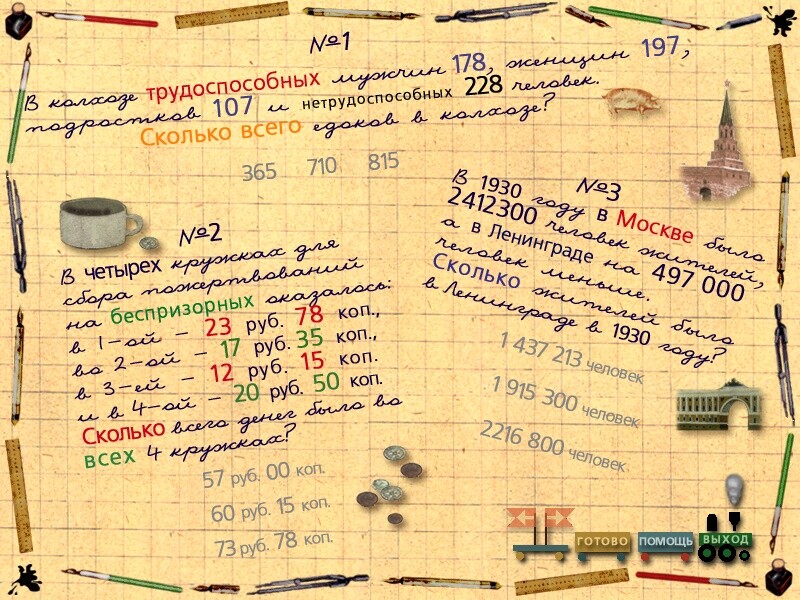 №1
В колхозе трудоспособных мужчин 178, женщин 197,
подростков 107 и нетрудоспособных 228 человек.
Сколько всего едоков в колхозе?
365 710 815
№2
В четырех кружках для
сбора пожертвований
на беспризорных оказалось:
в 1-ой – 23 руб. 78 коп.,
во 2-ой – 17 руб. 35 коп.,
в 3-ей – 12 руб. 15 коп.
и в 4-ой – 20 руб. 50 коп.
Сколько всего денег было во
всех 4 кружках?
57 руб. 00 коп.
60 руб. 15 коп.
73 руб. 78 коп.
№3
В 1930 году в Москве было
2412300 человек жителей,
а в Ленинграде на 497 000
человек меньше.
Сколько жителей было
в Ленинграде в 1930 году?
1 437 213 человек
1 915 300 человек
2216 800 человек
ГОТОВО ПОМОЩЬ ВЫХОД